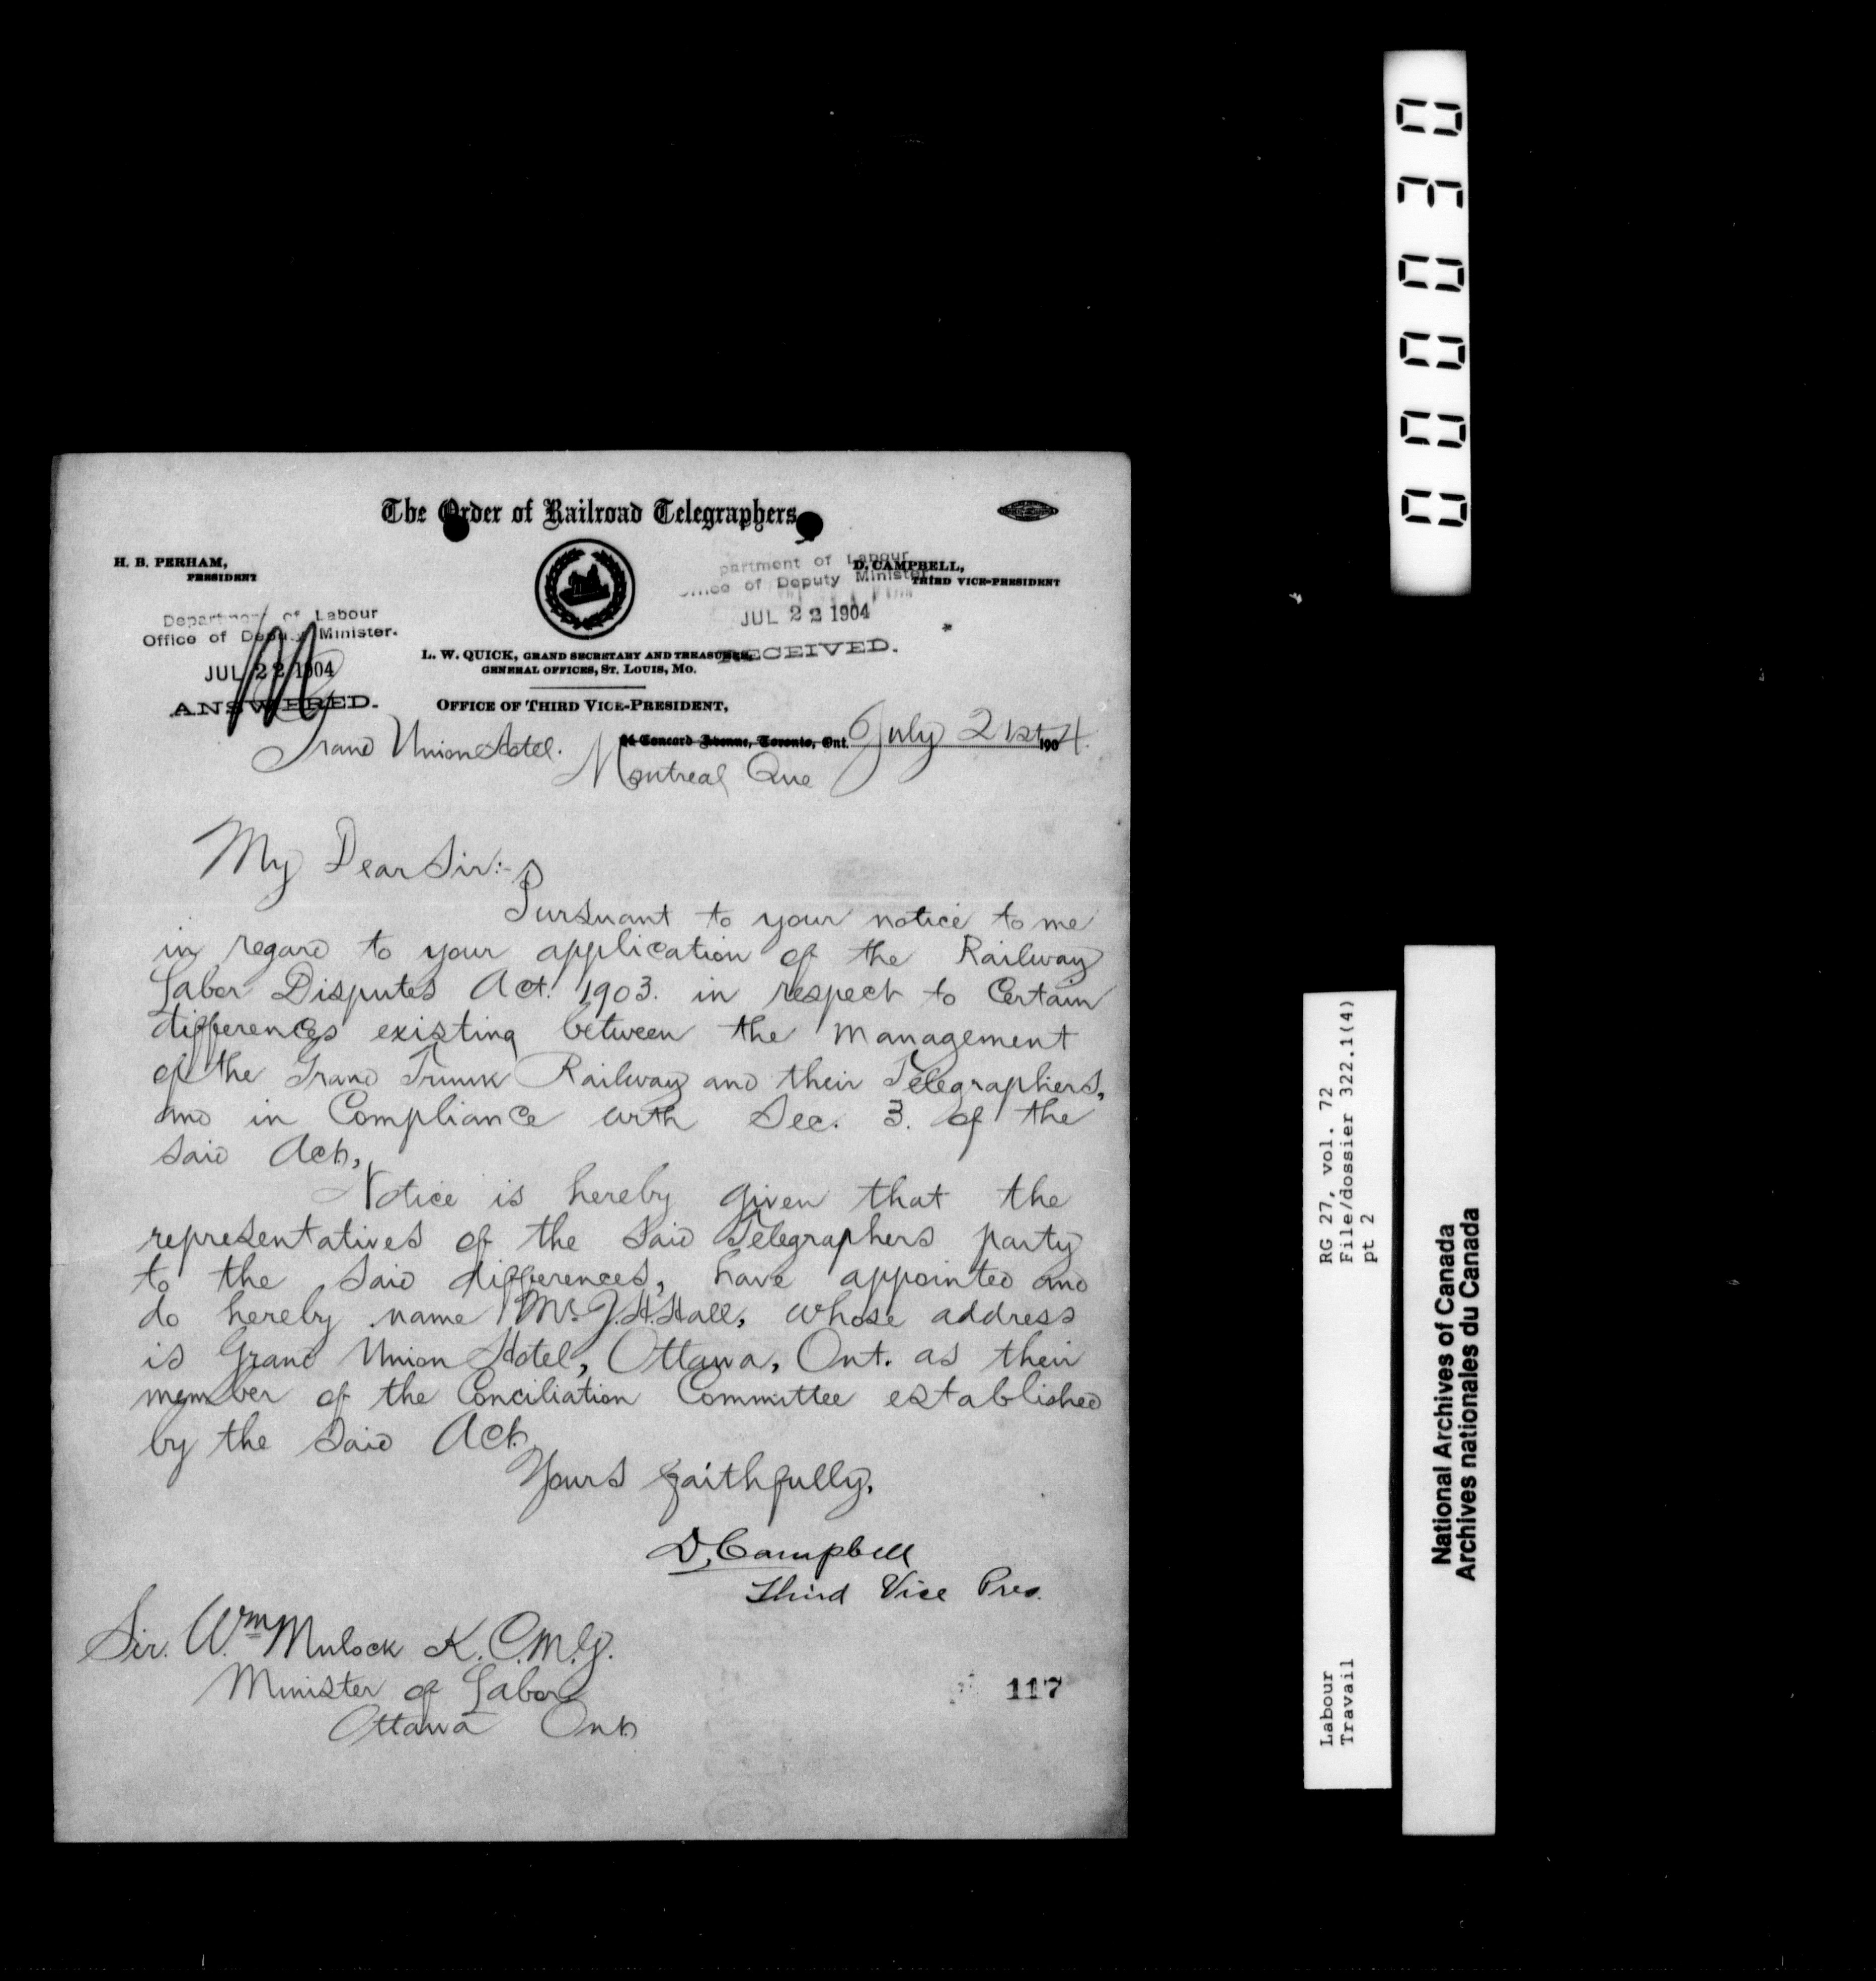 The Order of Railroad Telegraphers
H. B. PERHAM,
PRESIDENT
D. CAMPBELL,
THIRD VICE-PRESIDENT
partment of Labour
office of Deputy Minister
JUL 22 1904
RECEIVED.
Department of Labour
Office of Deputy Minister.
JUL 22 1904
ANSWERED.
L. W. QUICK, GRAND SECRETARY AND TREASURER,
GENERAL OFFICES, ST. LOUIS, MO.
OFFICE OF THIRD VICE-PRESIDENT,
Concord Avenue, Toronto, Ont. July 21st 1904.
Grand Union Hotel.
Montreal Que
My Dear Sir:-
Pursuant to your notice to me
in regard to your application of the Railway
Labor Disputes Act. 1903. in respect to Certain
differences existing between the management
of the Grand Trunk Railway and their Telegraphers,
and in Compliance with Sec. 3. of the
said Act,
Notice is hereby given that the
representatives of the said Telegraphers party
to the said differences, have appointed and
do hereby name Mr. J.H. Hall, whose address
is Grand Union Hotel, Ottawa, Ont. as their
member of the Conciliation Committee established
by the said Act.
Yours faithfully,
D. Campbell
Third Vice Pres.
Sir. Wm Mulock K.C.M.G.
Minister of Labor
Ottawa Ont
117
000030
RG 27, vol. 72
File/dossier 322.1(4)
pt 2
Labour
Travail
National Archives of Canada
Archives nationales du Canada